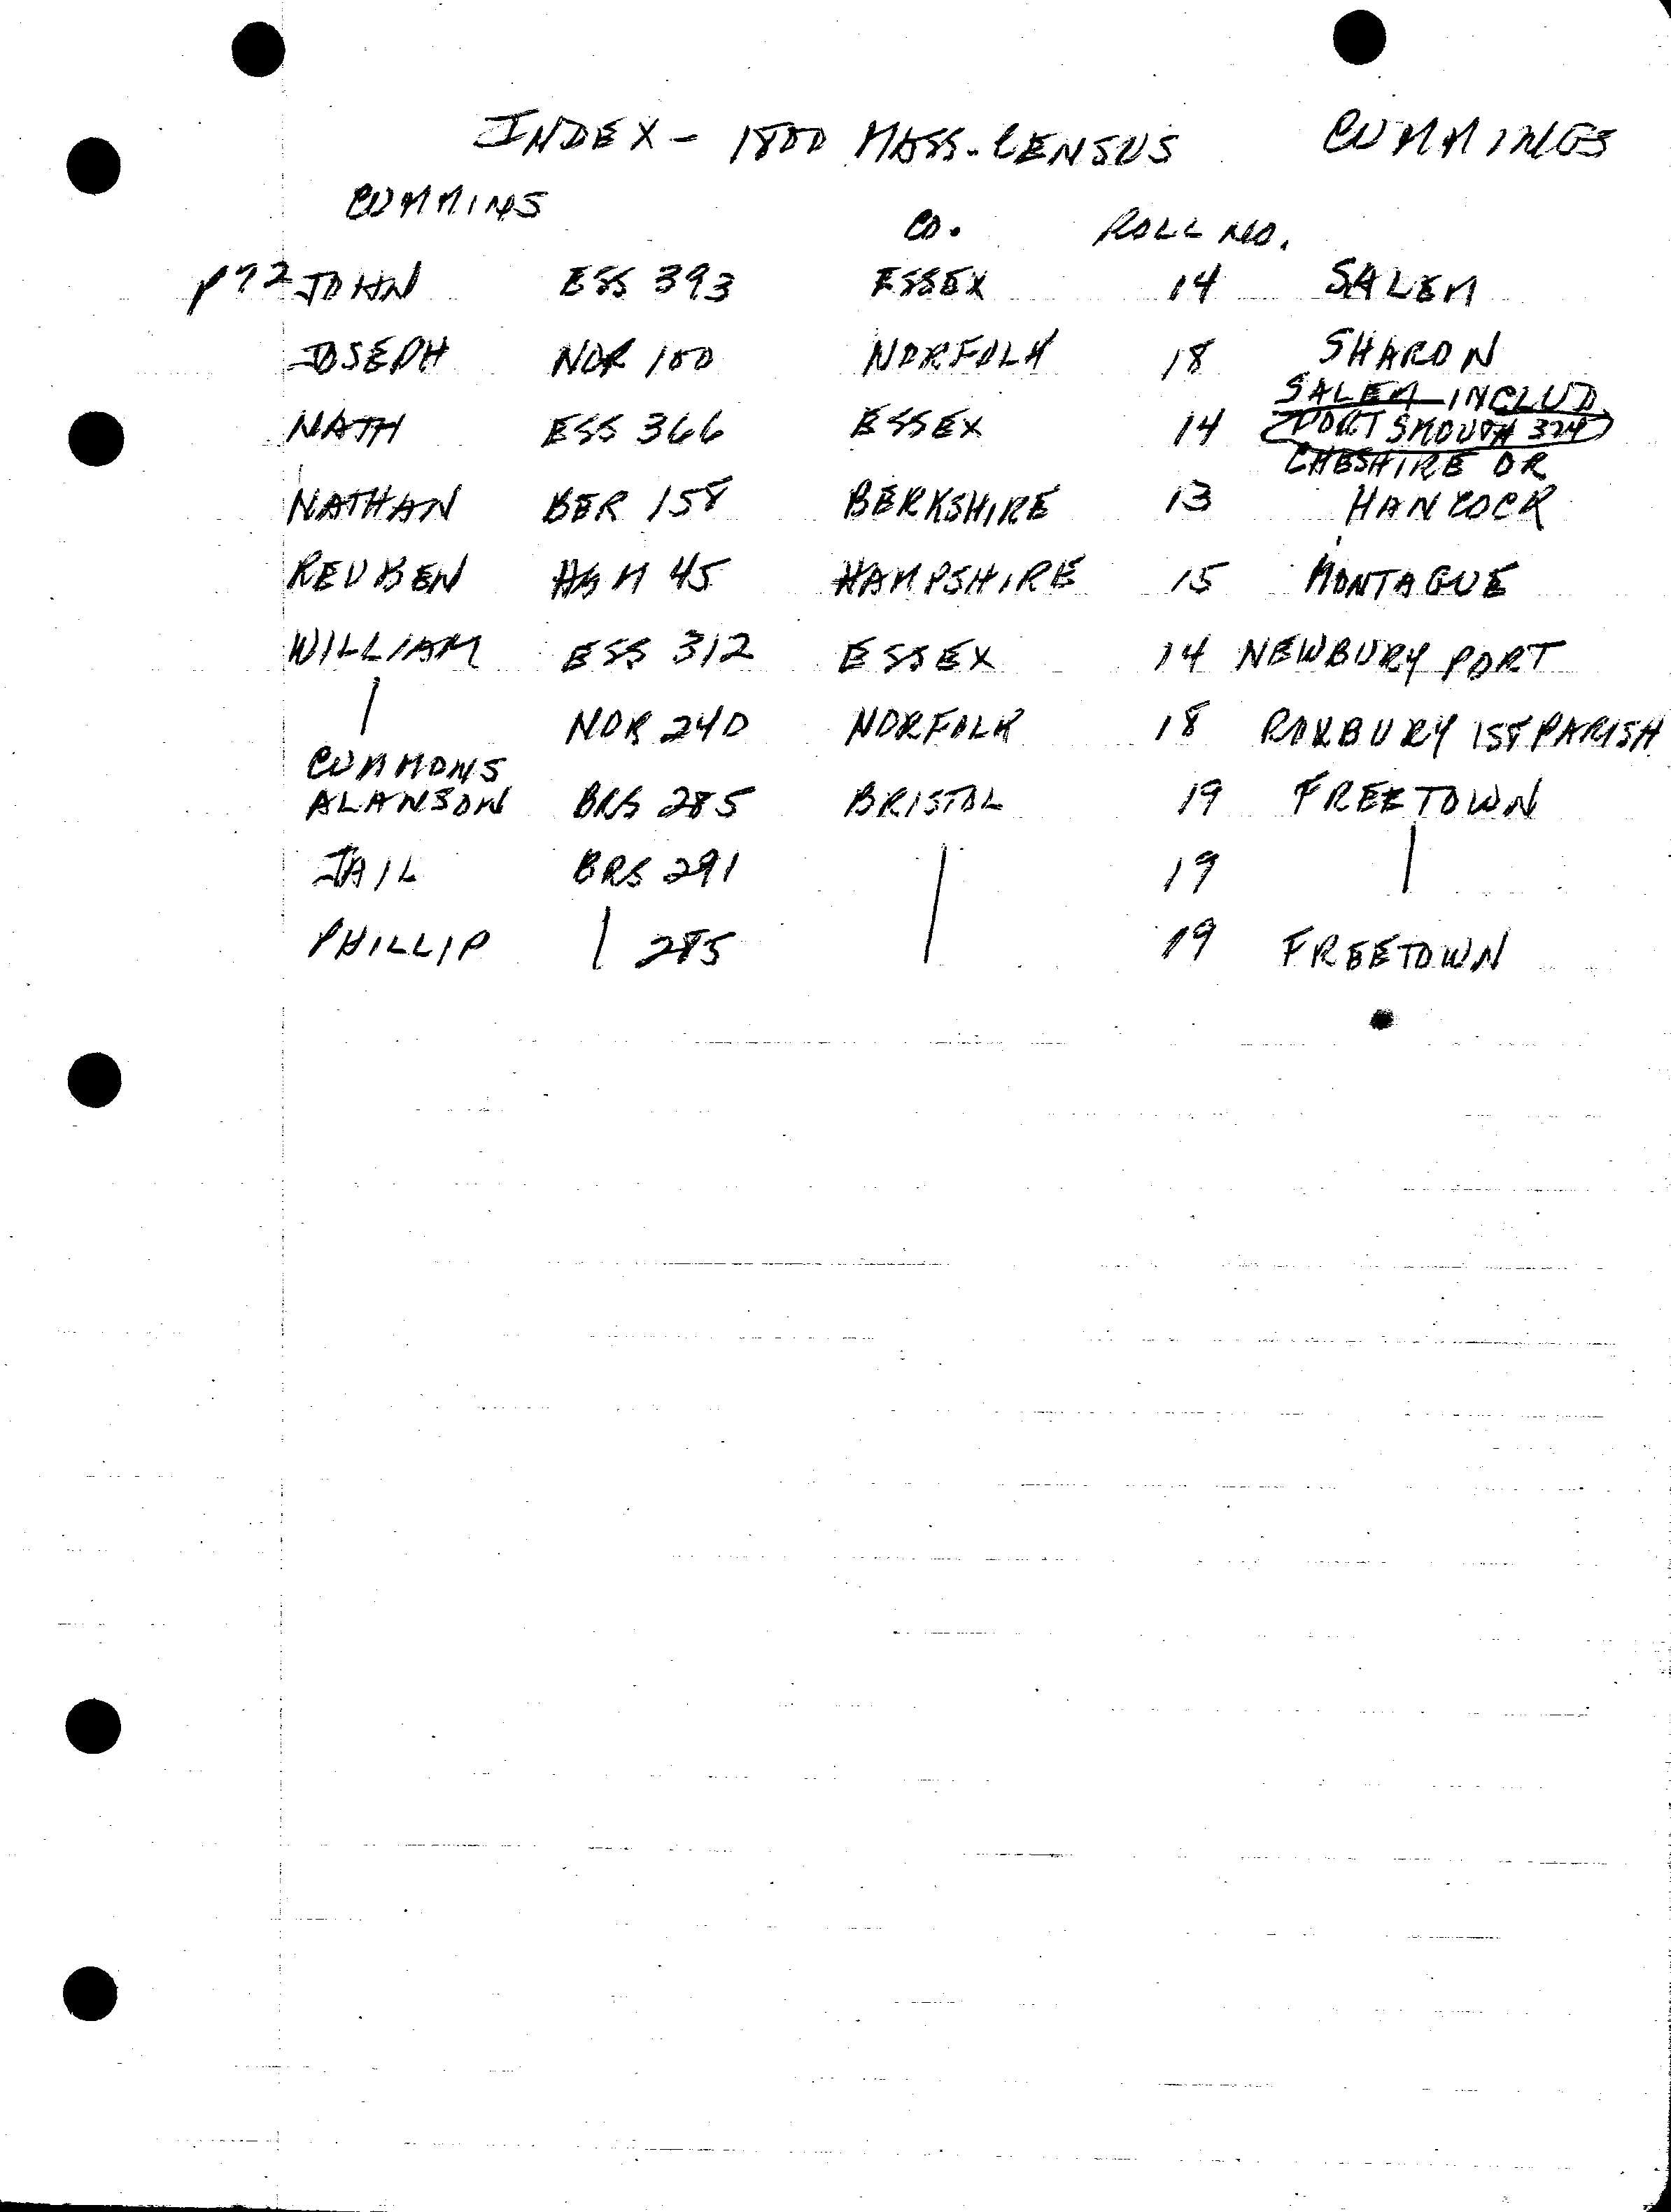 INDEX - 1800 MASS. CENSUS CUMMINGS
CUMMINS
CO. ROLL NO.
p72 JOHN ESS 393 ESSEX 14 SALEM
JOSEPH NOR 100 NORFOLK 18 SHARON
SALEM INCLUD.
NATH ESS 366 ESSEX 14 PORTSMOUTH 324
CHESHIRE OR
NATHAN BER 158 BERKSHIRE 13 HANCOCK
REUBEN HAM 45 HAMPSHIRE 15 MONTAGUE
WILLIAM ESS 312 ESSEX 14 NEWBURY PORT
| NOR 240 NORFOLK 18 ROXBURY 1ST PARISH
CUMMONS
ALANSON BRS 285 BRISTOL 19 FREETOWN
JAIL BRS 291 | 19 |
PHILLIP | 285 | 19 FREETOWN